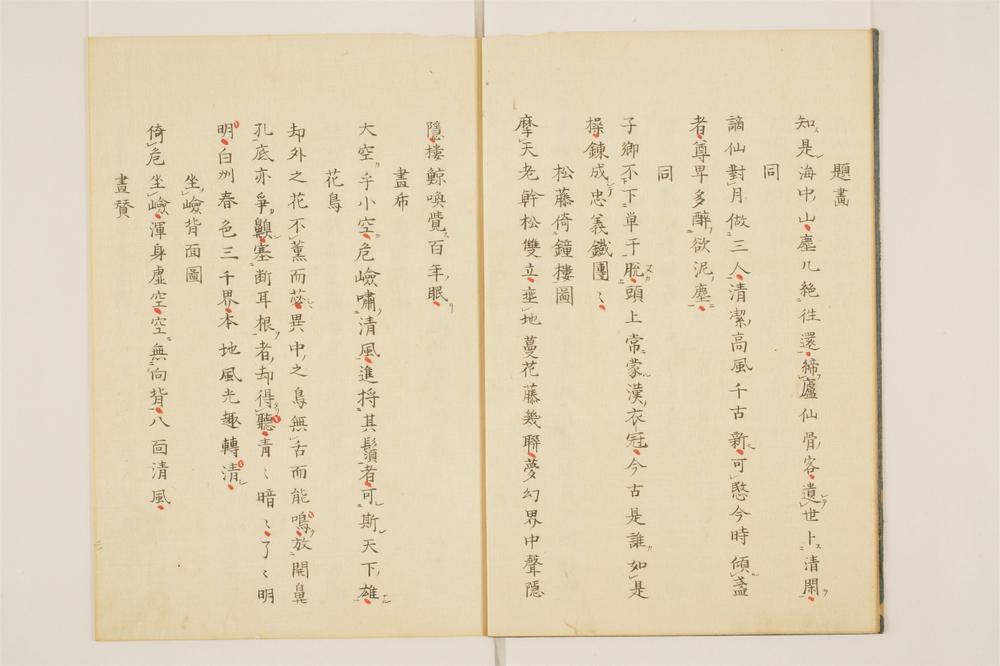 題畵
知是海中山塵凡絶徃還締廬仙骨客遺世卜清閑
同
謫仙對月做三人清潔高風千古新可愍今時傾盞
者尊卑多醉欲泥塵
同
子卿不下単于脱頭上常蒙漢衣冠今古是誰如是
操錬成忠義鐵團〻
松藤倚鐘樓圖
摩天老幹松雙立垂地蔓花藤幾聯夢幻界中聲隠
隠樓鯨喚覺百年眠
畵布
大空乎小空危嶮嘯清風進将其鬚者可斯天下雄
花鳥
却外之花不薫而苾異中之鳥無舌而能鳴放開鼻
孔底亦爭齅塞断耳根者却得聽青〻暗〻了〻明
明白州春色三千界本地風光趣轉清
坐嶮背面圖
倚危坐嶮渾身虚空空無向背八面清風
畫賛